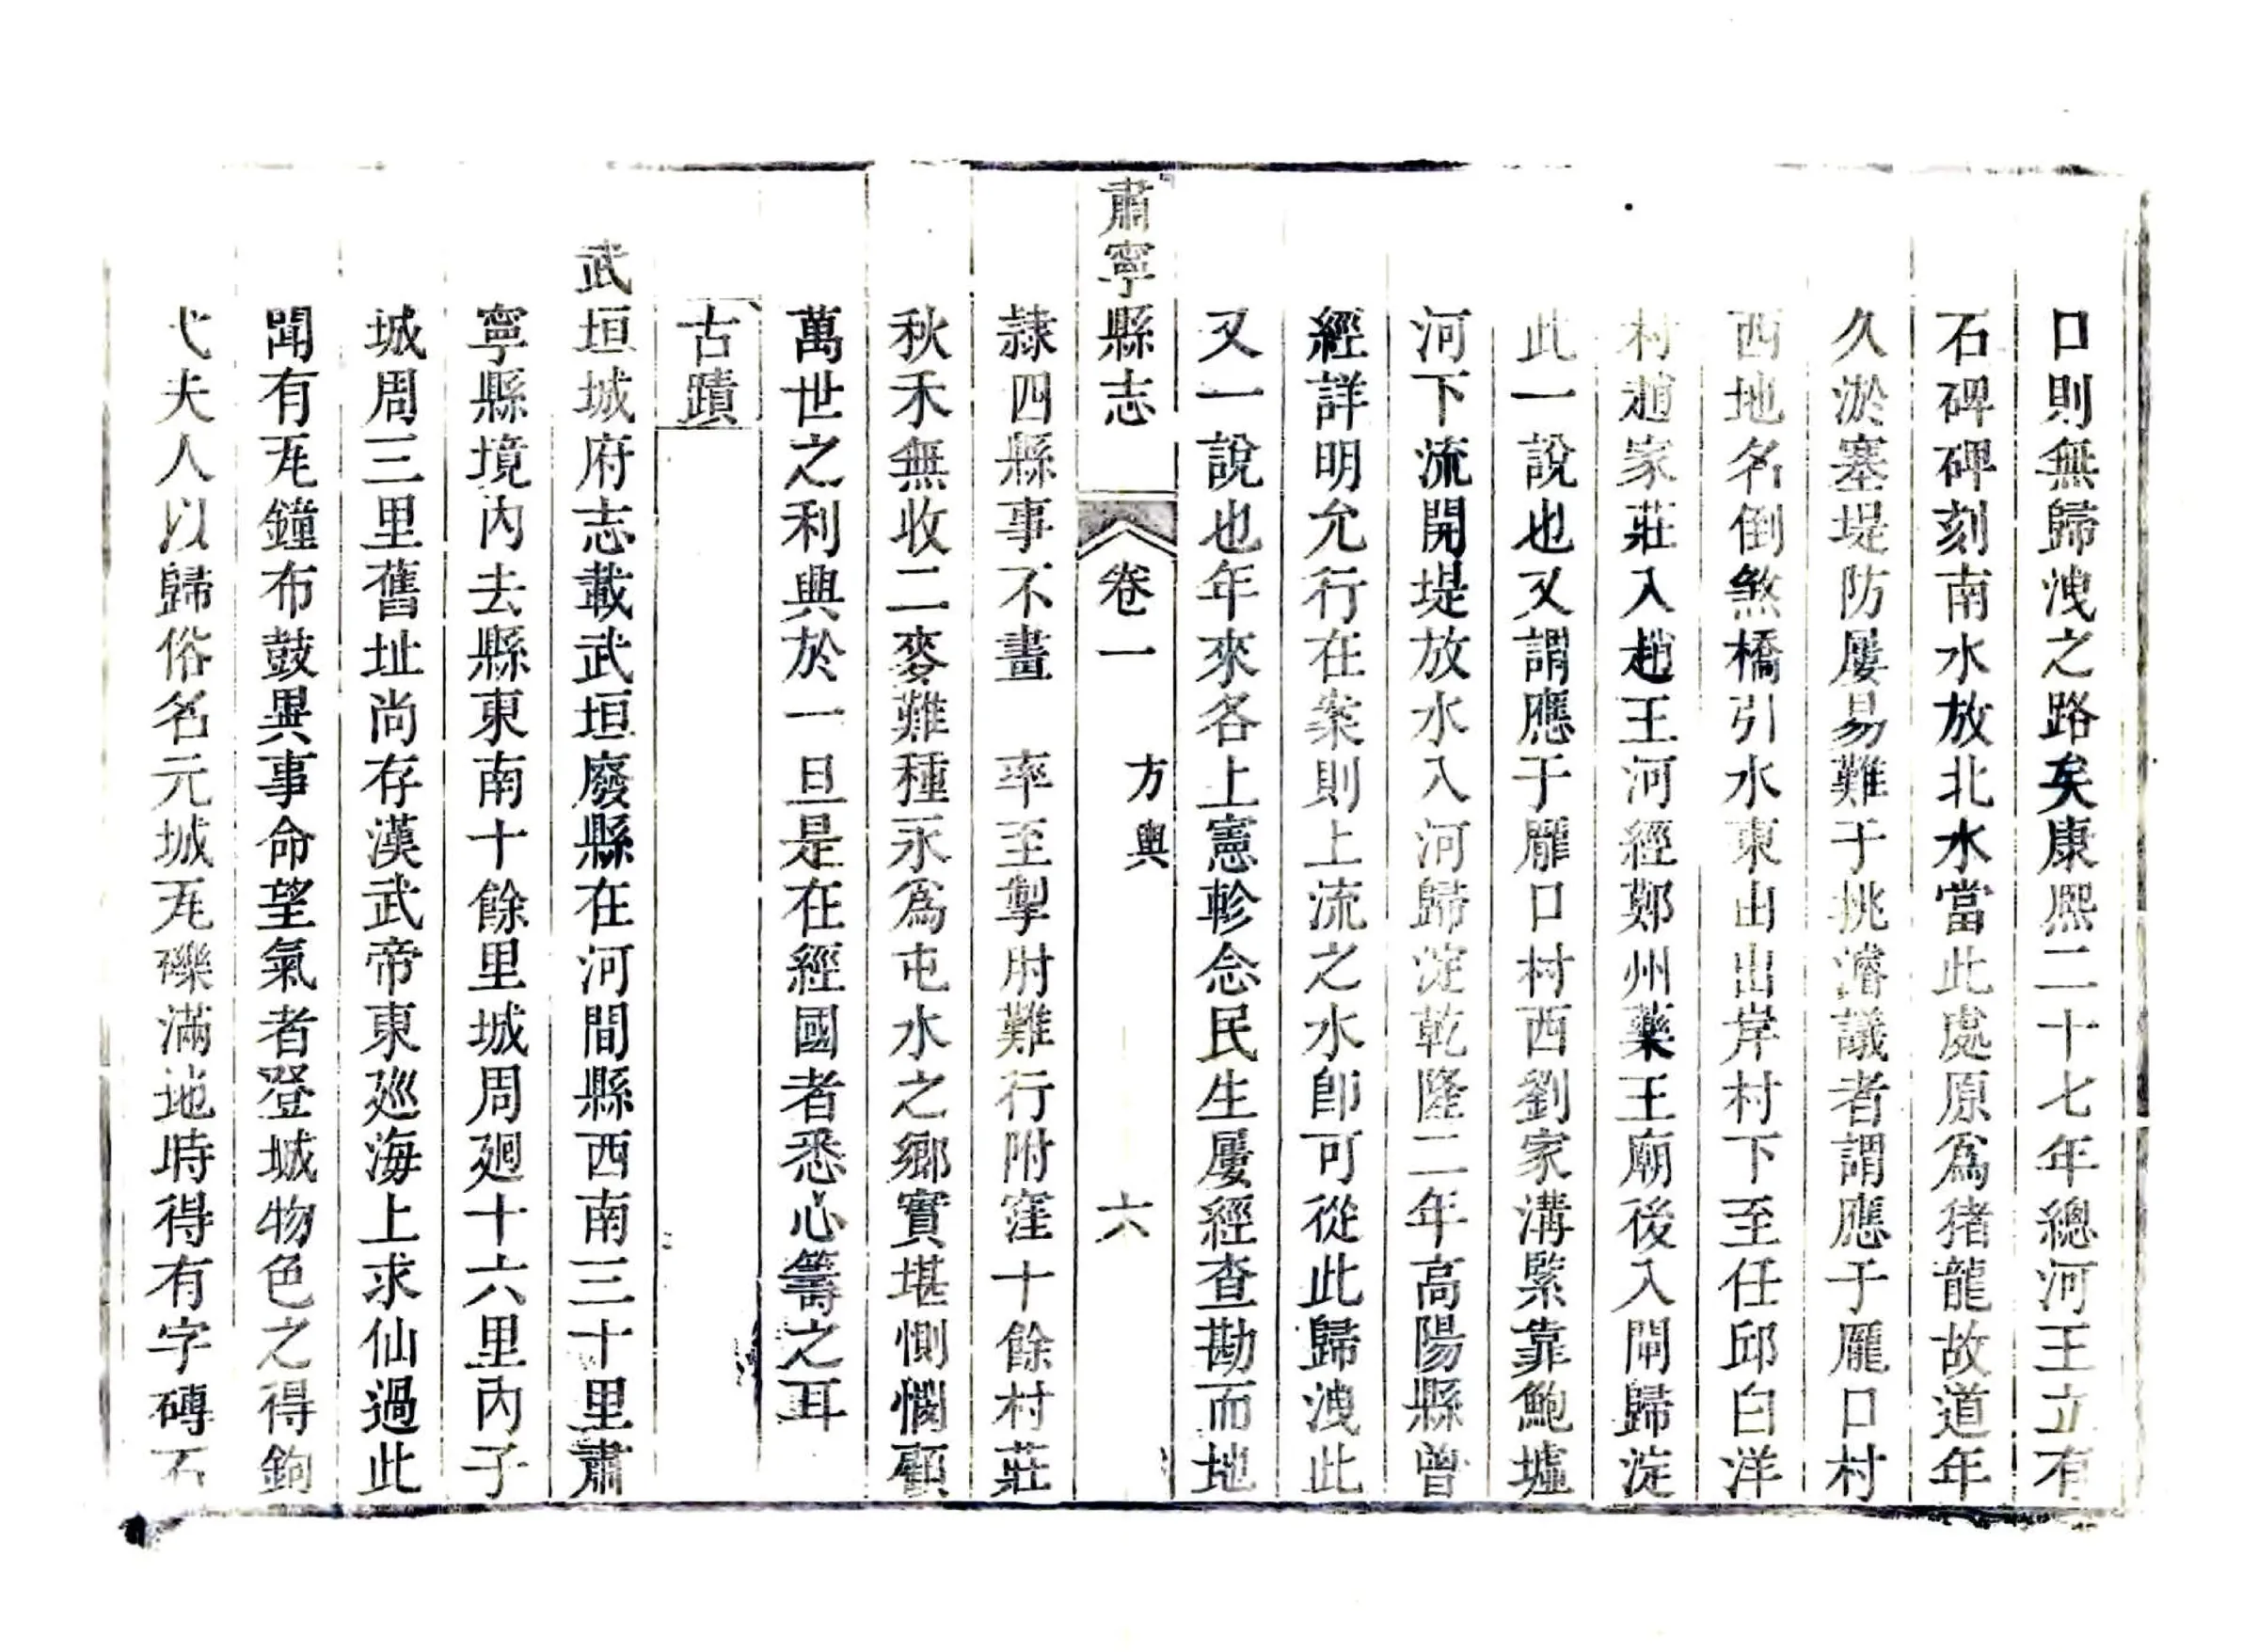 口則無歸洩之路矣康熙二十七年總河王立有
石碑碑刻南水放北水當此處原爲猪龍故道年
久淤塞堤防屢易難于挑濬議者謂應于龐口村
西地名倒煞橋引水東出出岸村下至任邱白洋
村趙家莊入趙王河經鄭州藥王廟後入閘歸淀
此一說也又謂應于龐口村西劉家溝緊靠鮑墟
河下流開堤放水入河歸淀乾隆二年高陽縣曾
經詳明允行在案則上流之水卽可從此歸洩此
又一說也年來各上憲軫念民生屢經查勘而地
肅寧縣志 卷一 方輿 六
隷四縣事不畫 率至掣肘難行附窪十餘村莊
秋禾無收二麥難種永爲屯水之鄉實堪惻憫顧
萬世之利興於一旦是在經國者悉心籌之耳
古蹟
武垣城府志載武垣廢縣在河間縣西南三十里肅
寧縣境內去縣東南十餘里城周廻十六里內子
城周三里舊址尚存漢武帝東廵海上求仙過此
聞有瓦鐘布鼓異事命望氣者登城物色之得鉤
弋夫人以歸俗名元城瓦礫滿地時得有字磚石